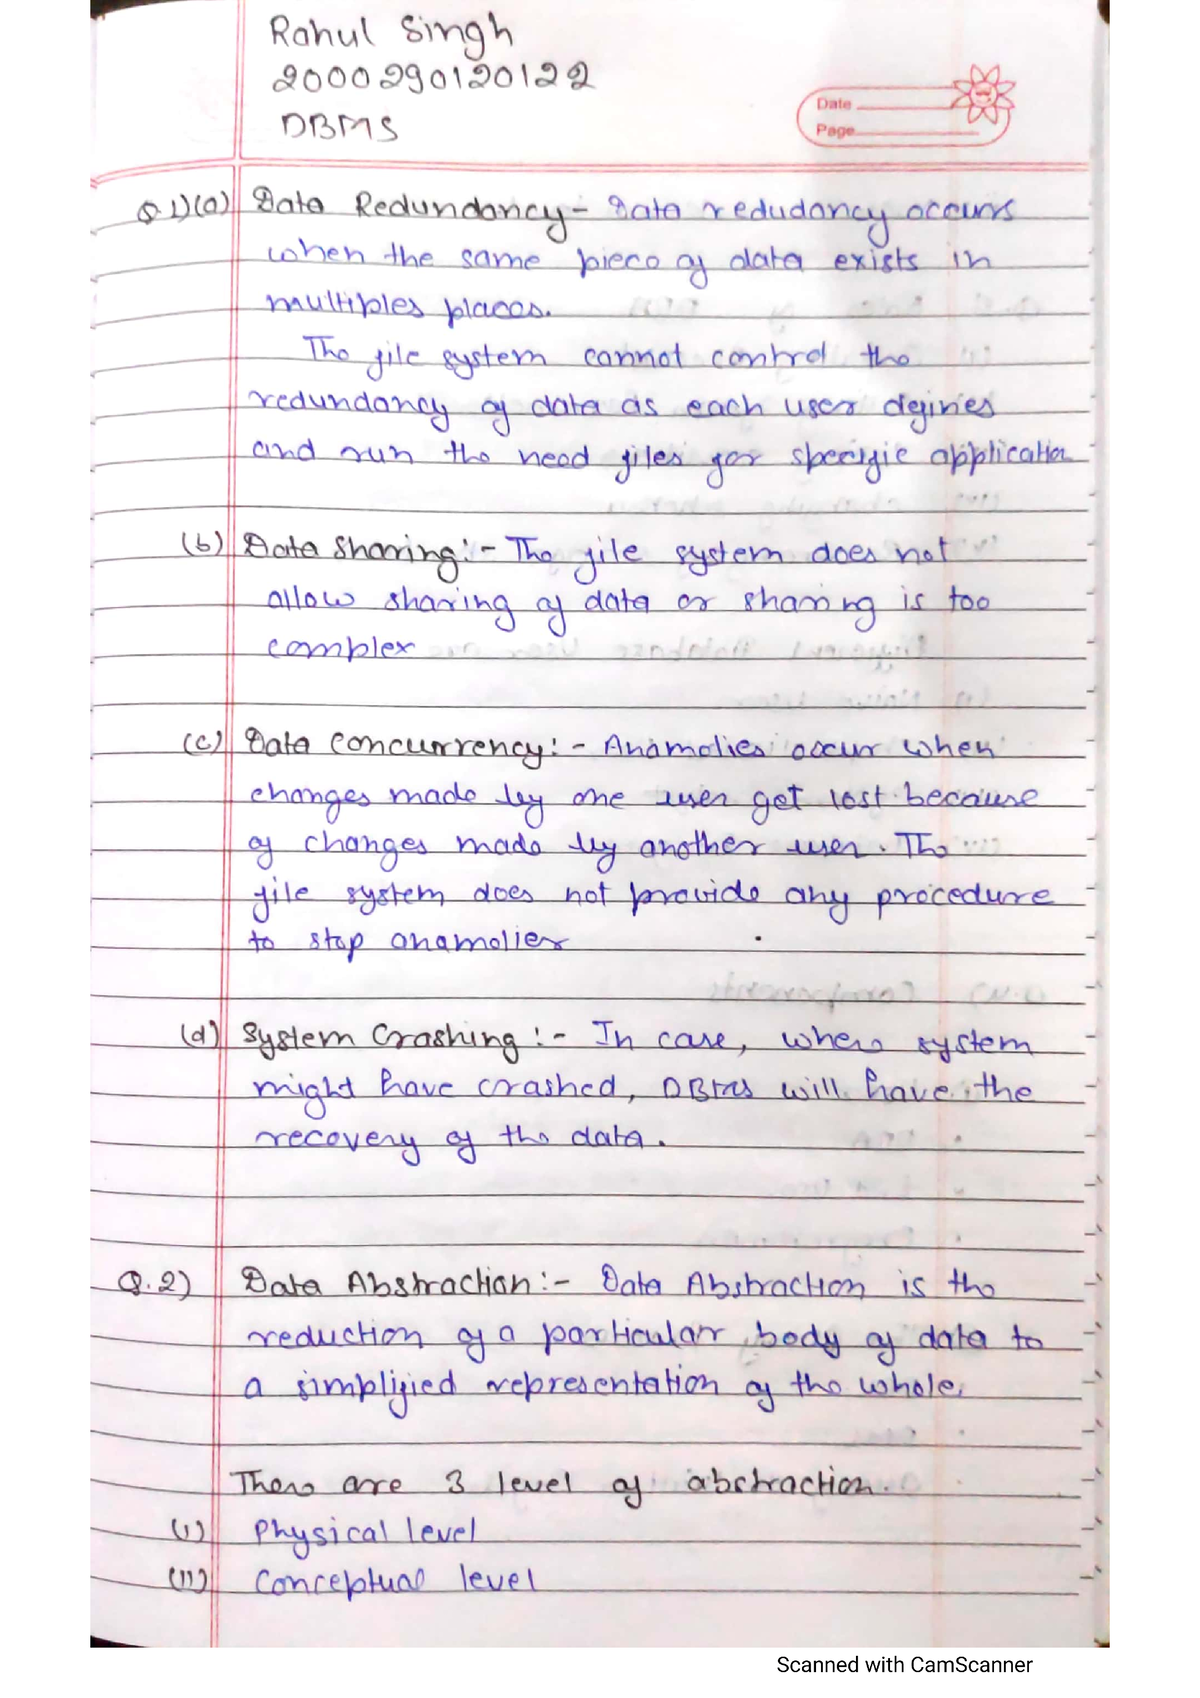 Rahul Singh
2000290120122
DBMS
Date
Page
Q.1)(a) Data Redundancy- Data redudancy occurs
when the same piece of data exists in
multiples places.
The file system cannot control the
redundancy of data as each user defines
and run the need files for specific application
(b) Data Sharing:- The file system does not
allow sharing of data or sharing is too
complex
(c) Data Concurrency:- Anamolies occur when
changes made by one user get lost because
of changes made by another user. The
file system does not provide any procedure
to stop anamolies
(d) System Crashing:- In case, where system
might have crashed, DBMS will have the
recovery of the data.
Q.2) Data Abstraction:- Data Abstraction is the
reduction of a particular body of data to
a simplified representation of the whole.
There are 3 level of abstraction.
(i) Physical level
(ii) Conceptual level
Scanned with CamScanner